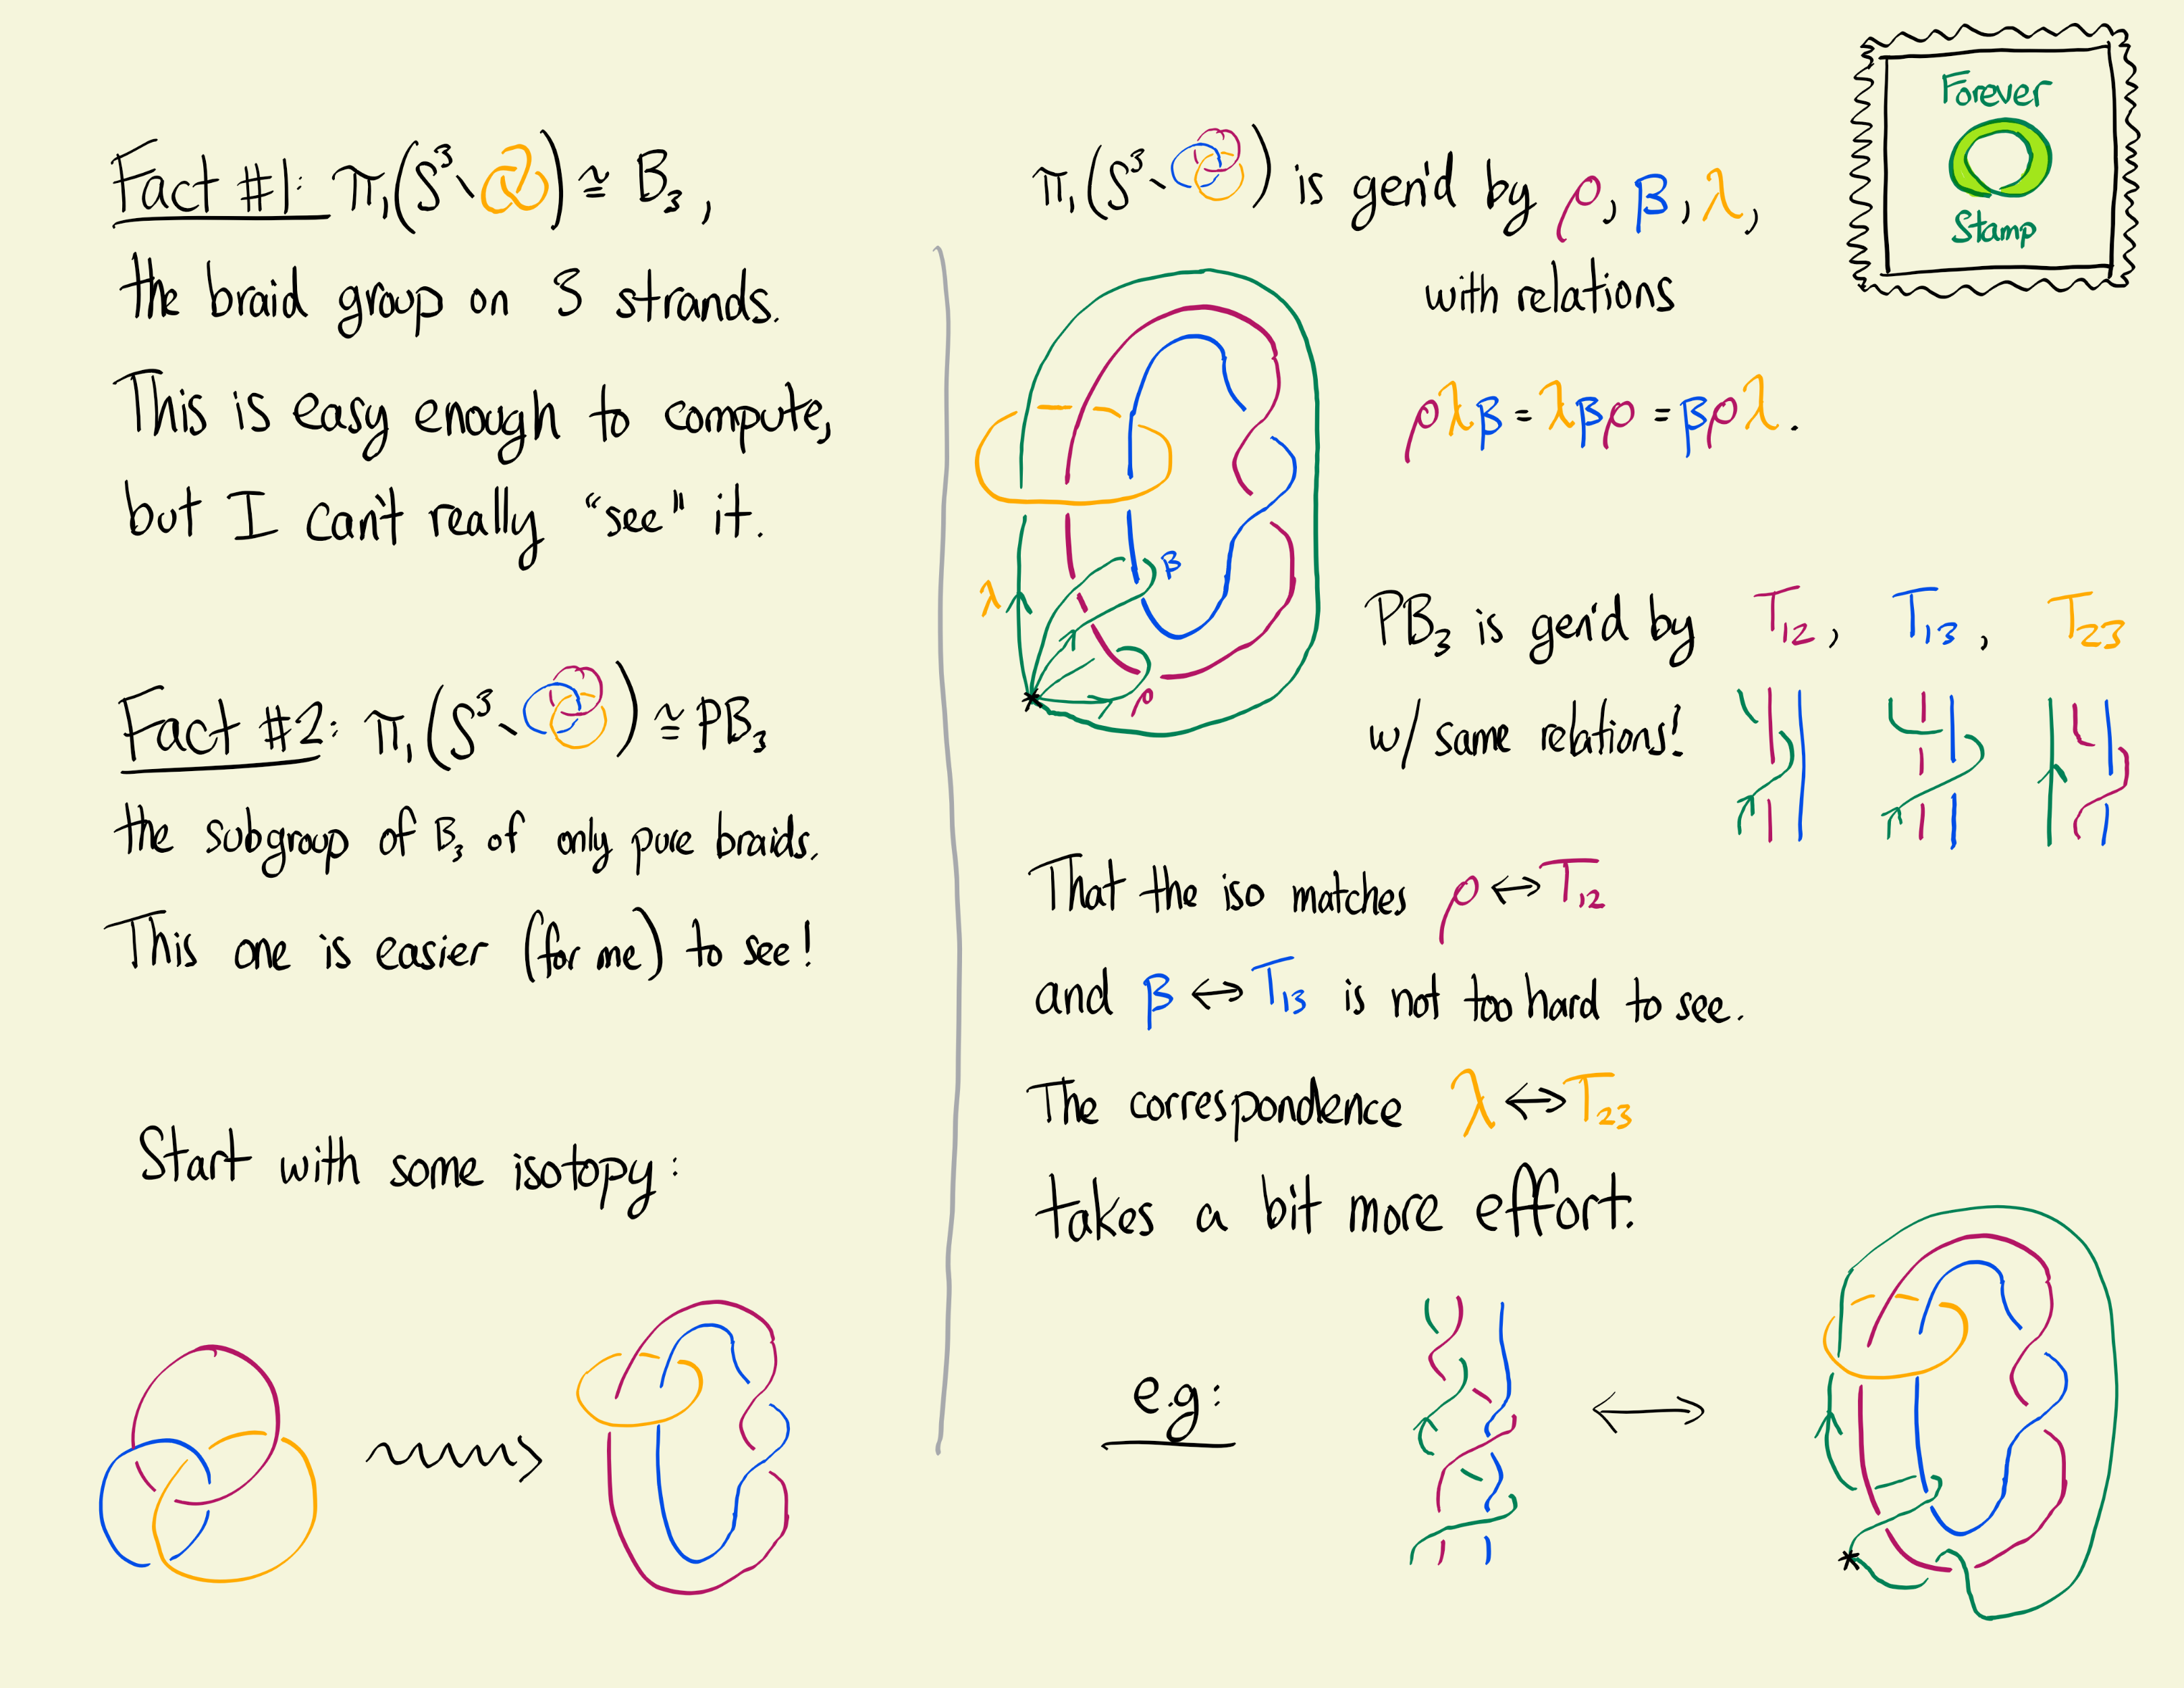 Fact #1: π₁(S³∖ ) ≅ B₃,
the braid group on 3 strands.
This is easy enough to compute,
but I can't really "see" it.
Fact #2: π₁(S³∖ ) ≅ PB₃
the subgroup of B₃ of only pure braids.
This one is easier (for me) to see!
Start with some isotopy:
π₁(S³∖ ) is gen'd by ρ, β, λ,
with relations
ρλβ = λβρ = βρλ.
β
λ
*
ρ
PB₃ is gen'd by T₁₂, T₁₃, T₂₃
w/ same relations!
That the iso matches ρ ↔ T₁₂
and β ↔ T₁₃ is not too hard to see.
The correspondence λ ↔ T₂₃
takes a bit more effort.
e.g:
*
Forever
Stamp